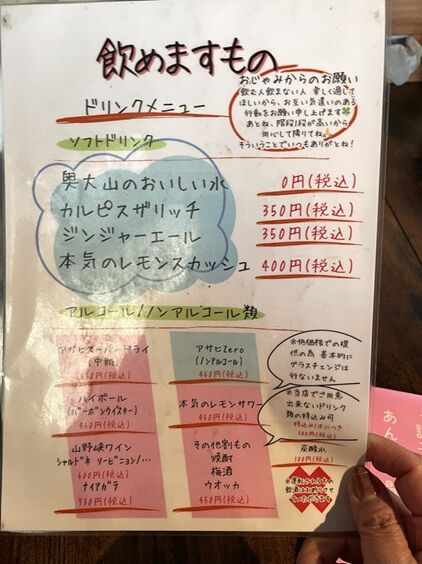 飲めますもの
おじゃみからのお願い
飲む人飲まない人 楽しく過して
ほしいから、お互い気遣いのある
行動をお願い申し上げます🍀
あとね、階段1段が高いから
用心して降りてね
そういうことでいつもありがとね!
ドリンクメニュー
ソフトドリンク
奥大山のおいしい水 0円(税込)
カルピスザリッチ 350円(税込)
ジンジャーエール 350円(税込)
本気のレモンスカッシュ 400円(税込)
アルコール/ノンアルコール類
アサヒスーパードライ
(中瓶)
(税込)
アサヒZero
(ノンアルコール)
460円(税込)
※低価格での提
供の為 基本的に
グラスチェンジは
行ないません
ハイボール
(バーボンウイスキー)
450円(税込)
本気のレモンサワー
450円(税込)
※当店でご用意
出来ないドリンク
類の持込み可
持込み1本につき
100円(税込)
山野峡ワイン
シャルドネ ソービニョン/…
600円(税込)
ナイアガラ
730円(税込)
その他割もの
焼酎
梅酒
ウオッカ
450円(税込)
炭酸水
100円(税込)
あん